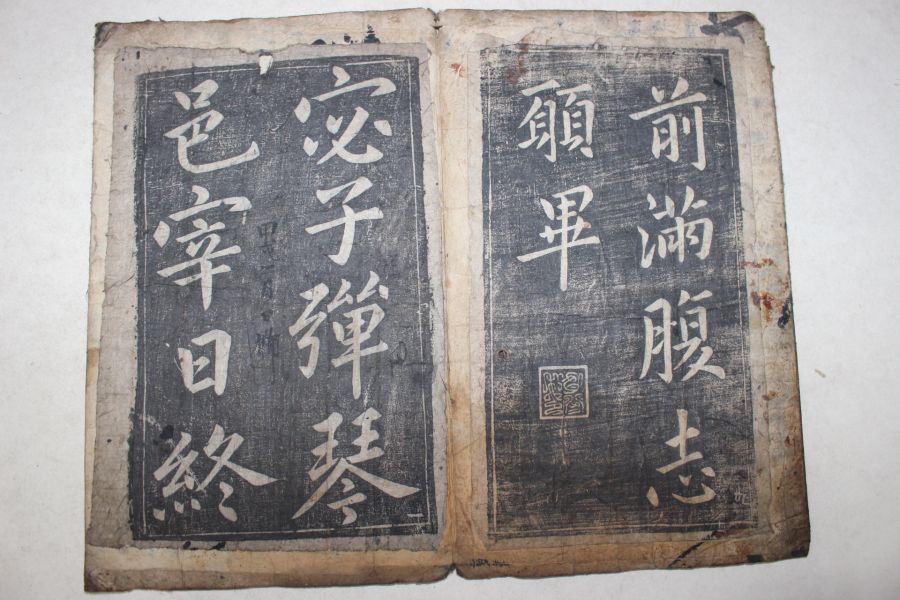 前滿腹志
願畢
宓子彈琴
邑宰日終